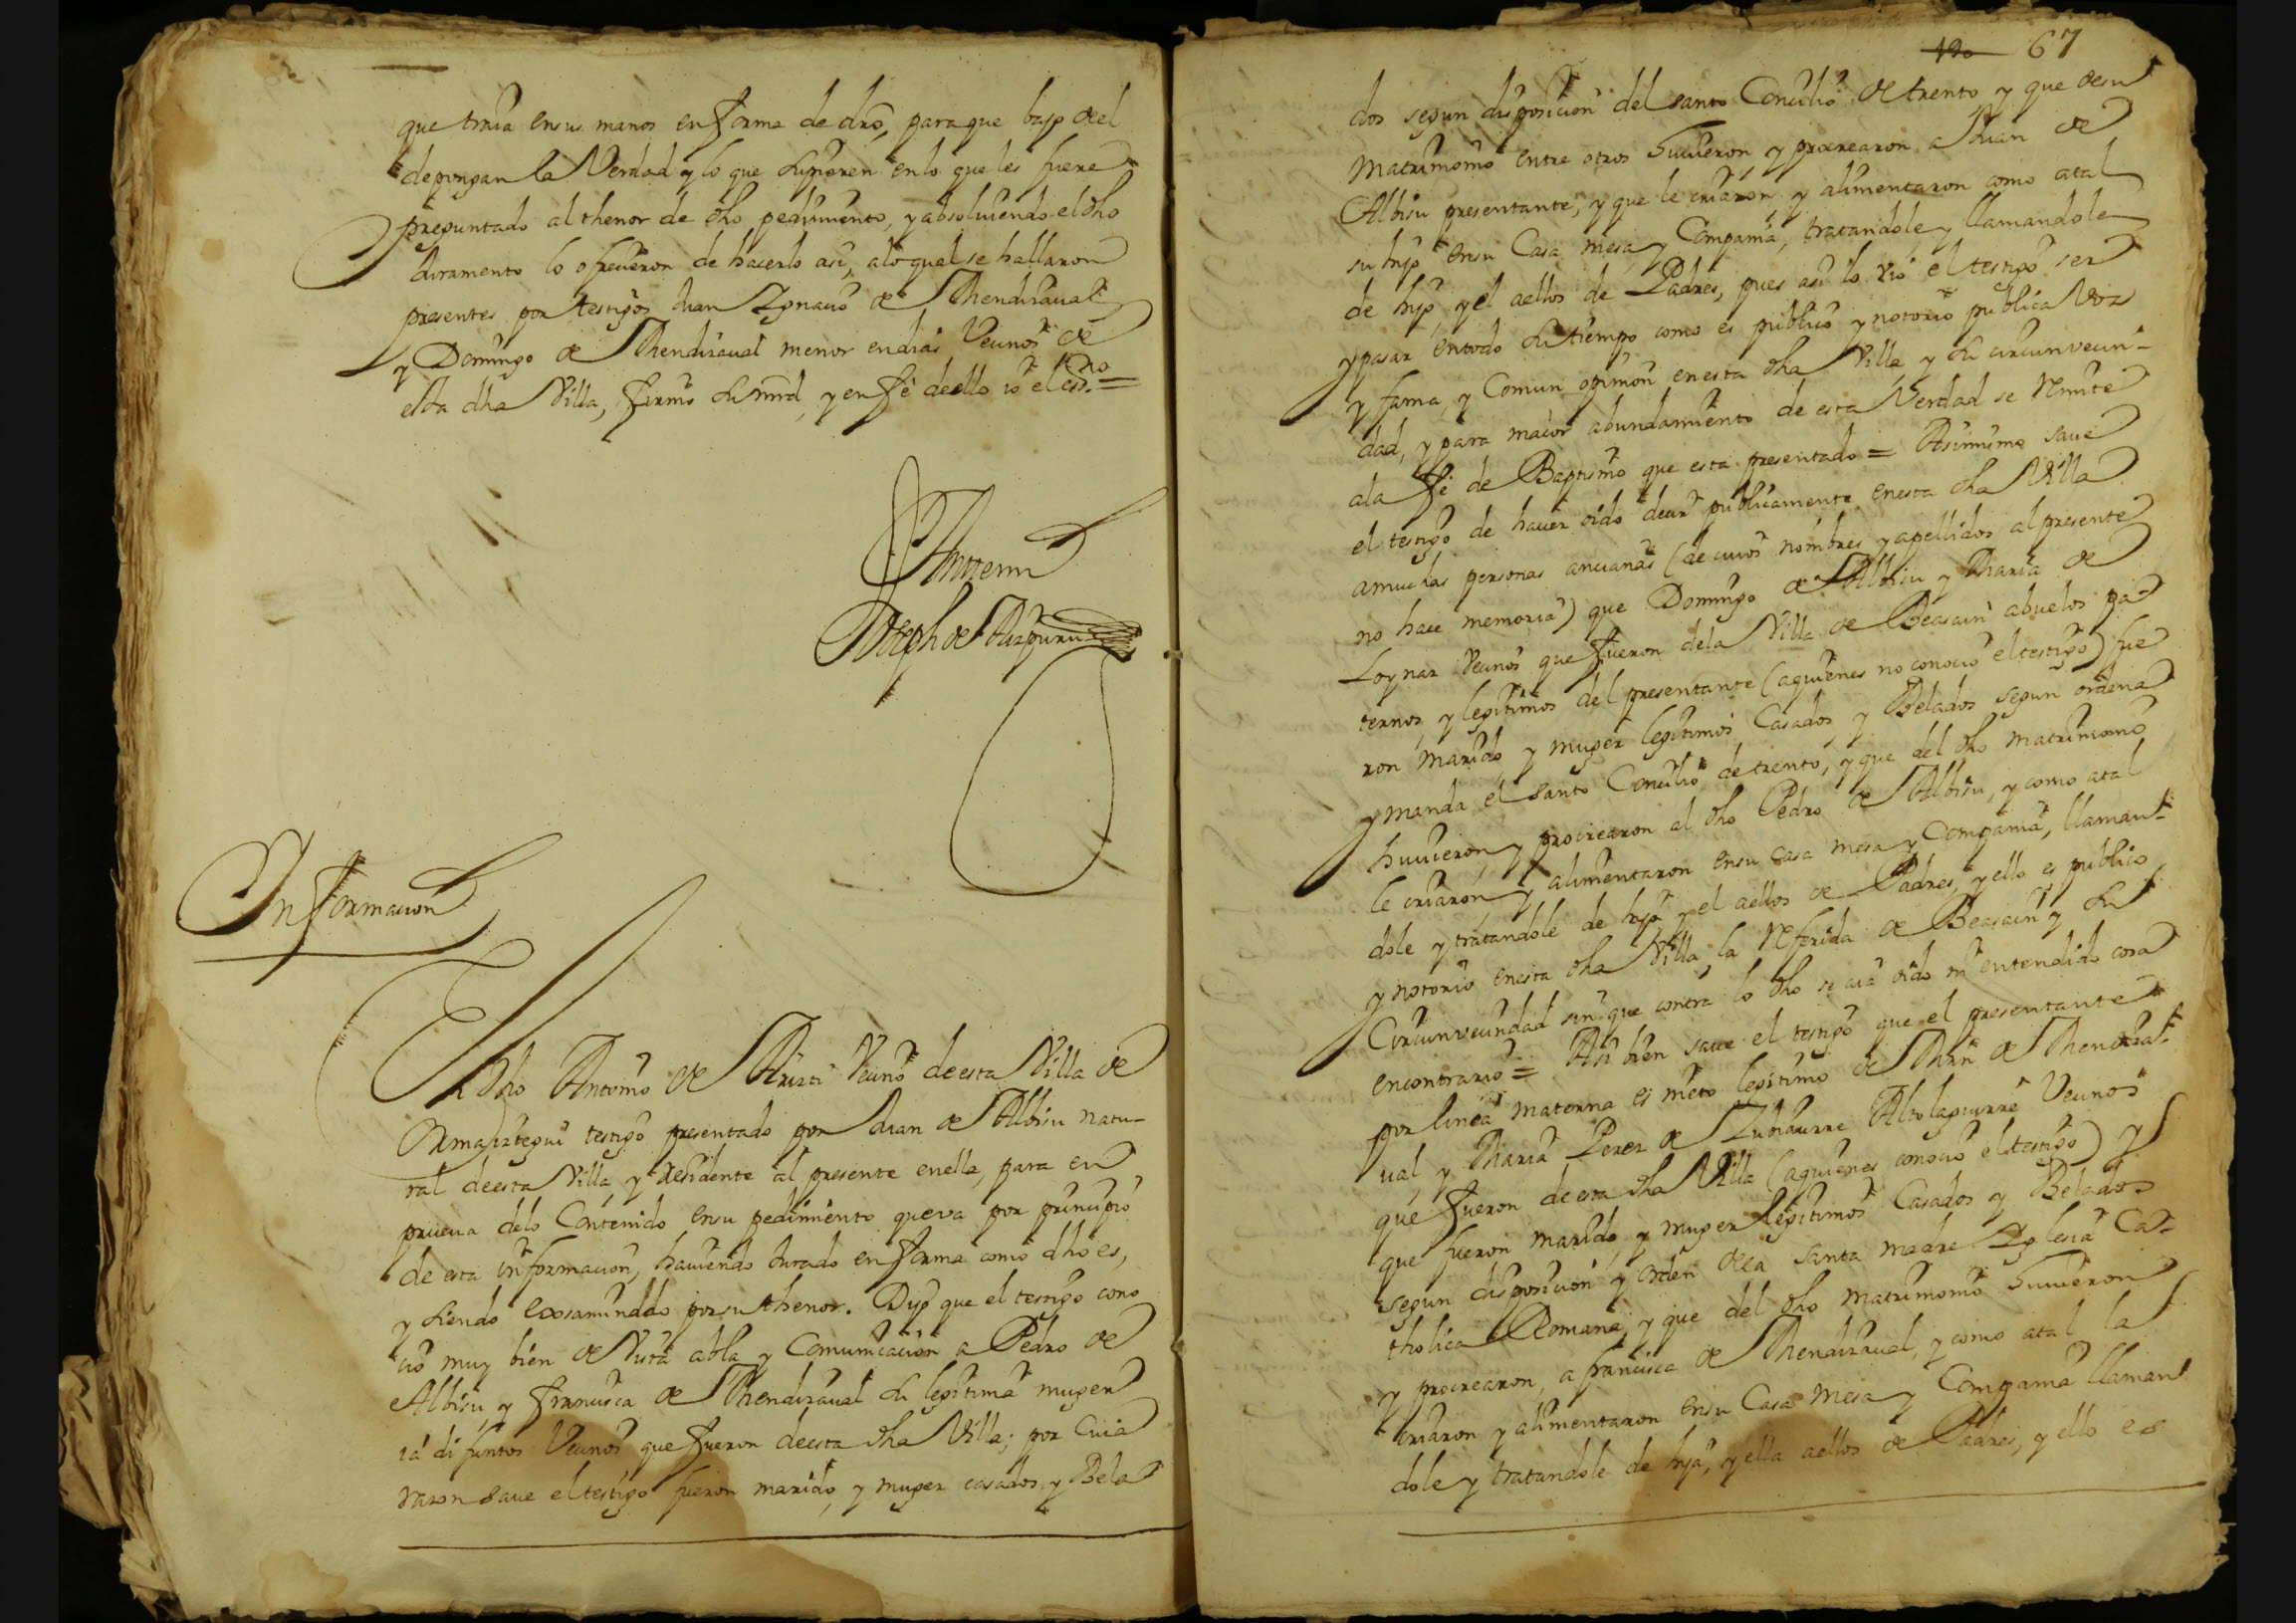 que traia en sus manos en forma de dro, para que bajo de el
depongan la Verdad y lo que supieren en lo que les fuere
preguntado al thenor de dho pedimiento, y absolviendo el dho
Juramento lo ofrecieron de hacerlo asi, alo qual se hallaron
presentes por testigos Juan Ygnacio de Mendizaval
y Domingo de Mendizaval menor en dias Vecinos de
esta dha Villa, firmo su mrd, y en fe de ello io el essno =
Antemi
Joseph de Aizpuru
Informacion
El dho Antonio de Arizti Vecino de esta Villa de
Ormaiztegui testigo presentado por Juan de Albisu natu-
ral de esta Villa y residente al presente en ella, para en
prueva delo Contenido en su pedimiento que va por principio
de esta informacion, haviendo Jurado en forma como dho es,
y siendo exsaminado por su thenor. Dijo que el testigo cono
cio muy bien de Vista abla y Comunicacion a Pedro de
Albisu, y francisca de Mendizaval su legitima muger
ia difuntos Vecinos que fueron de esta dha Villa; por Cuia
razon save el testigo fueron marido, y muger casados y Bela
120 67
dos segun disposicion del santo Concilio de trento y que de su
Matrimonio entre otros huvieron y procrearon a Juan de
Albisu presentante, y que le criaron y alimentaron como atal
su hijo en su Casa mesa y Compania, tratandole y llamandole
de hijo y el aellos de Padres, pues asi lo vio el testigo ser
y pasar en todo su tiempo como es publico y notorio publica Voz
y fama, y Comun opinion en esta dha Villa y su circunvecin-
dad, y para maior abundamiento de esta Verdad se remite
ala fe de Baptismo que esta presentado = Asimismo save
el testigo de haver oido decir publicamente en esta dha Villa
amuchas personas ancianas (de cuios nombres y apellidos al presente
no hace memoria) que Domingo de Albisu y Maria de
Loynaz Vecinos que fueron dela Villa de Beasain abuelos pa-
ternos, y legitimos del presentante (aquienes no conocio el testigo) fue
ron marido y muger legitimos Casados, y Belados segun ordena
y manda el santo Concilio de trento, y que del dho matrimonio
huvieron y procrearon al dho Pedro de Albisu, y como atal
le criaron y alimentaron en su casa mesa y Compania, llaman-
dole y tratandole de hijo y el aellos de Padres, y ello es publico
y notorio en esta dha Villa, la referida de Beasain y su
Circunvecindad sin que contra lo dho se aia oido ni entendido cosa
encontrario = Asi bien save el testigo que el presentante
por linea materna es nieto legitimo de Mrn de Mendiza-
val, y Maria Perez de Zubiaurre Altolaguirre Vecinos
que fueron de esta dha Villa (aquienes conocio el testigo) y
que fueron marido, y muger legitimos Casados y Belados
segun disposicion y orden dela santa madre Yglesia Ca-
tholica Romana, y que del dho matrimonio huvieron
y procrearon, a francisca de Mendizaval, y como atal la
criaron y alimentaron en su Casa Mesa y Compania llaman
dole y tratandole de hija, y ella aellos de Padres, y ello es